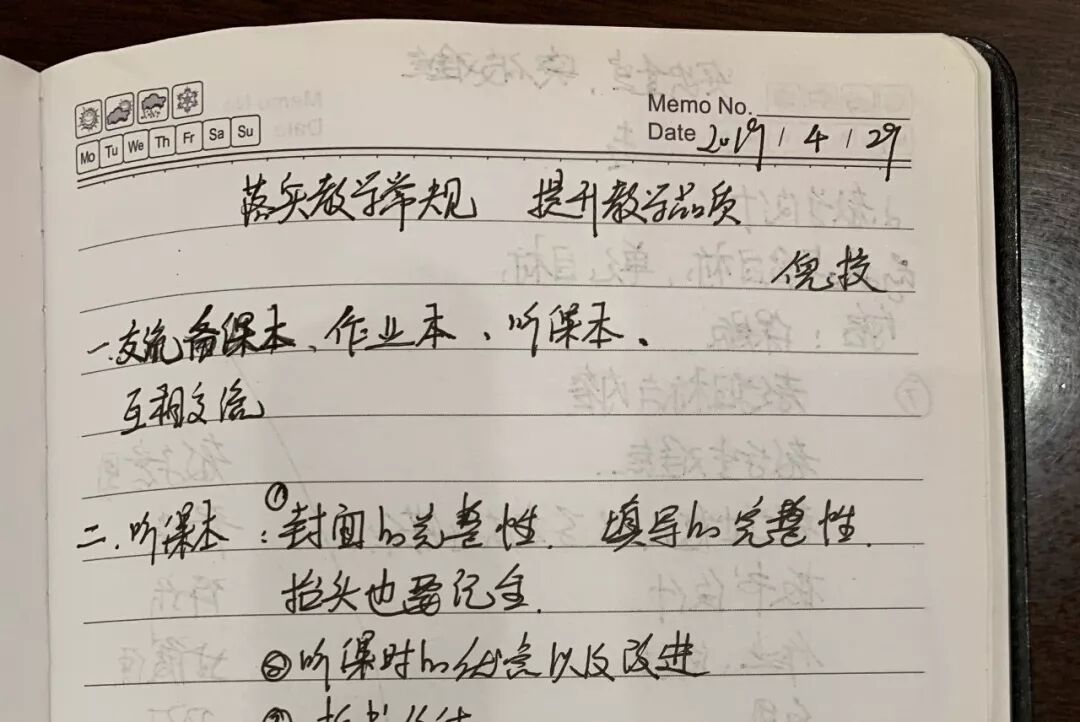 Memo No.
Mo Tu We Th Fr Sa Su
Date 2019 / 4 / 29
落实教学常规 提升教学品质
倪校
一.交流备课本、作业本、听课本、
互相交流
二.听课本:①封面的完整性. 填写的完整性.
抬头也要记全.
②听课时的优点以及改进